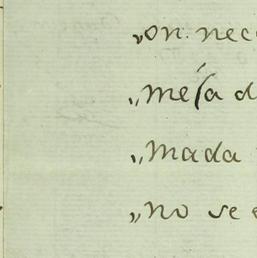 „on nec
„mesa d
„mada
„no se e